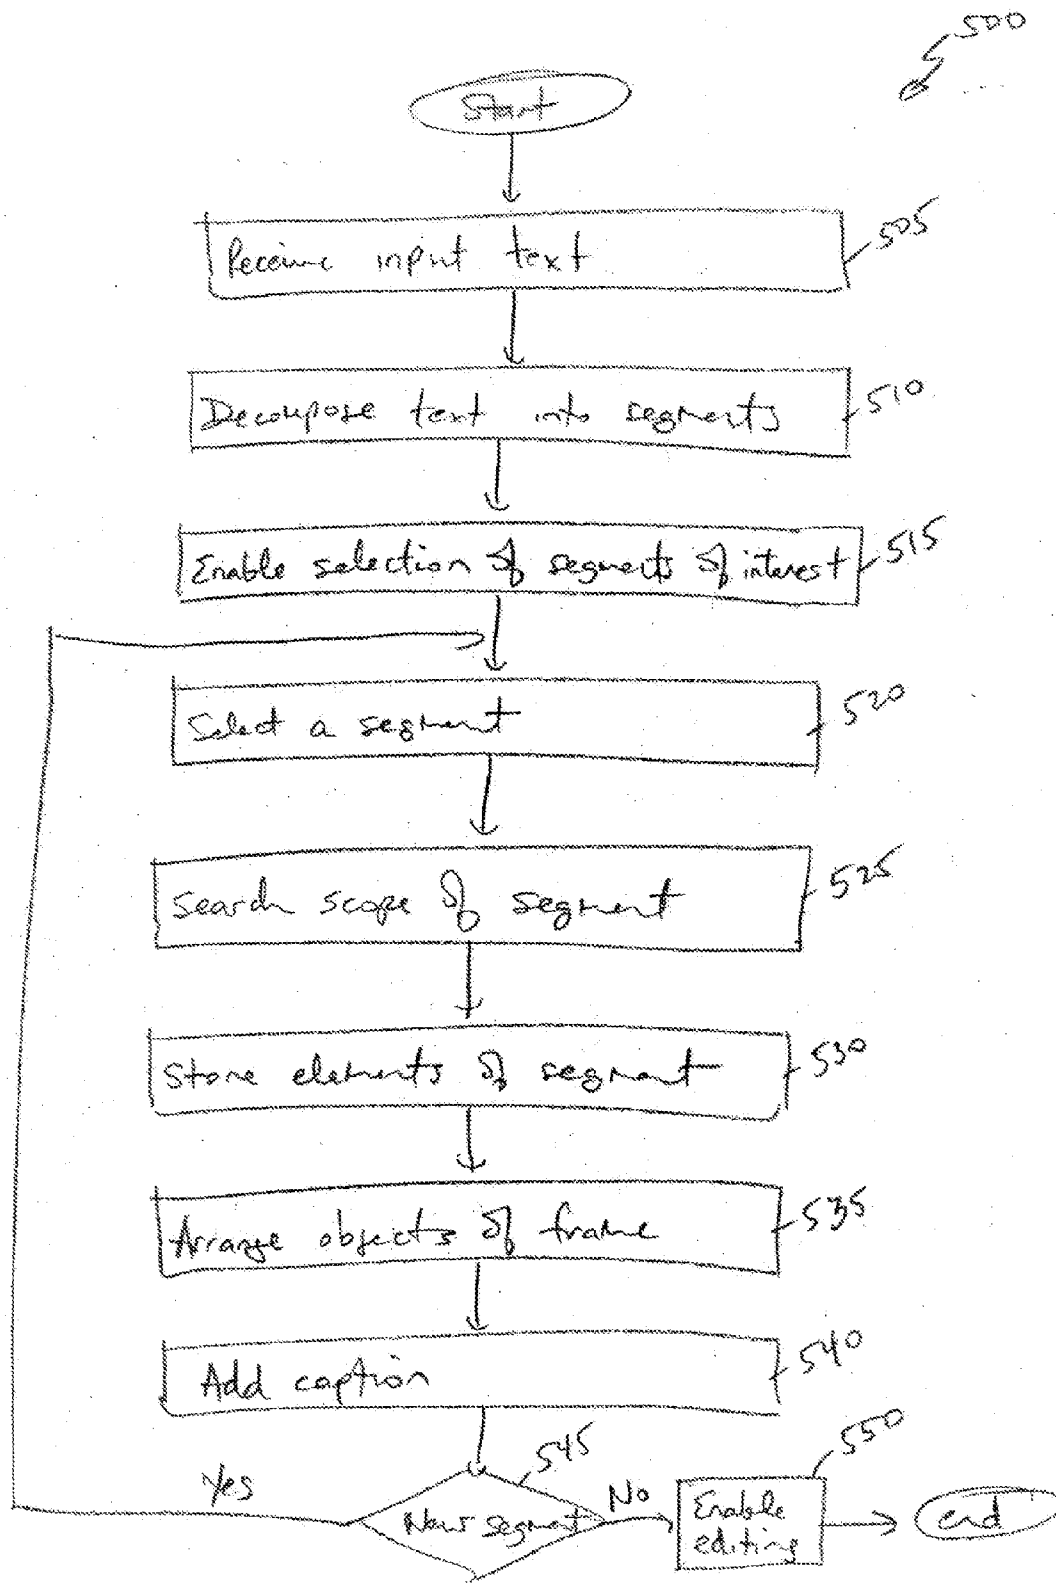 500
Start
Receive input text
505
Decompose text into segments
510
Enable selection of segments of interest
515
Select a segment
520
Search scope of segment
525
Store elements of segment
530
Arrange objects of frame
535
Add caption
540
545
550
Yes
New segment
No
Enable
editing
end